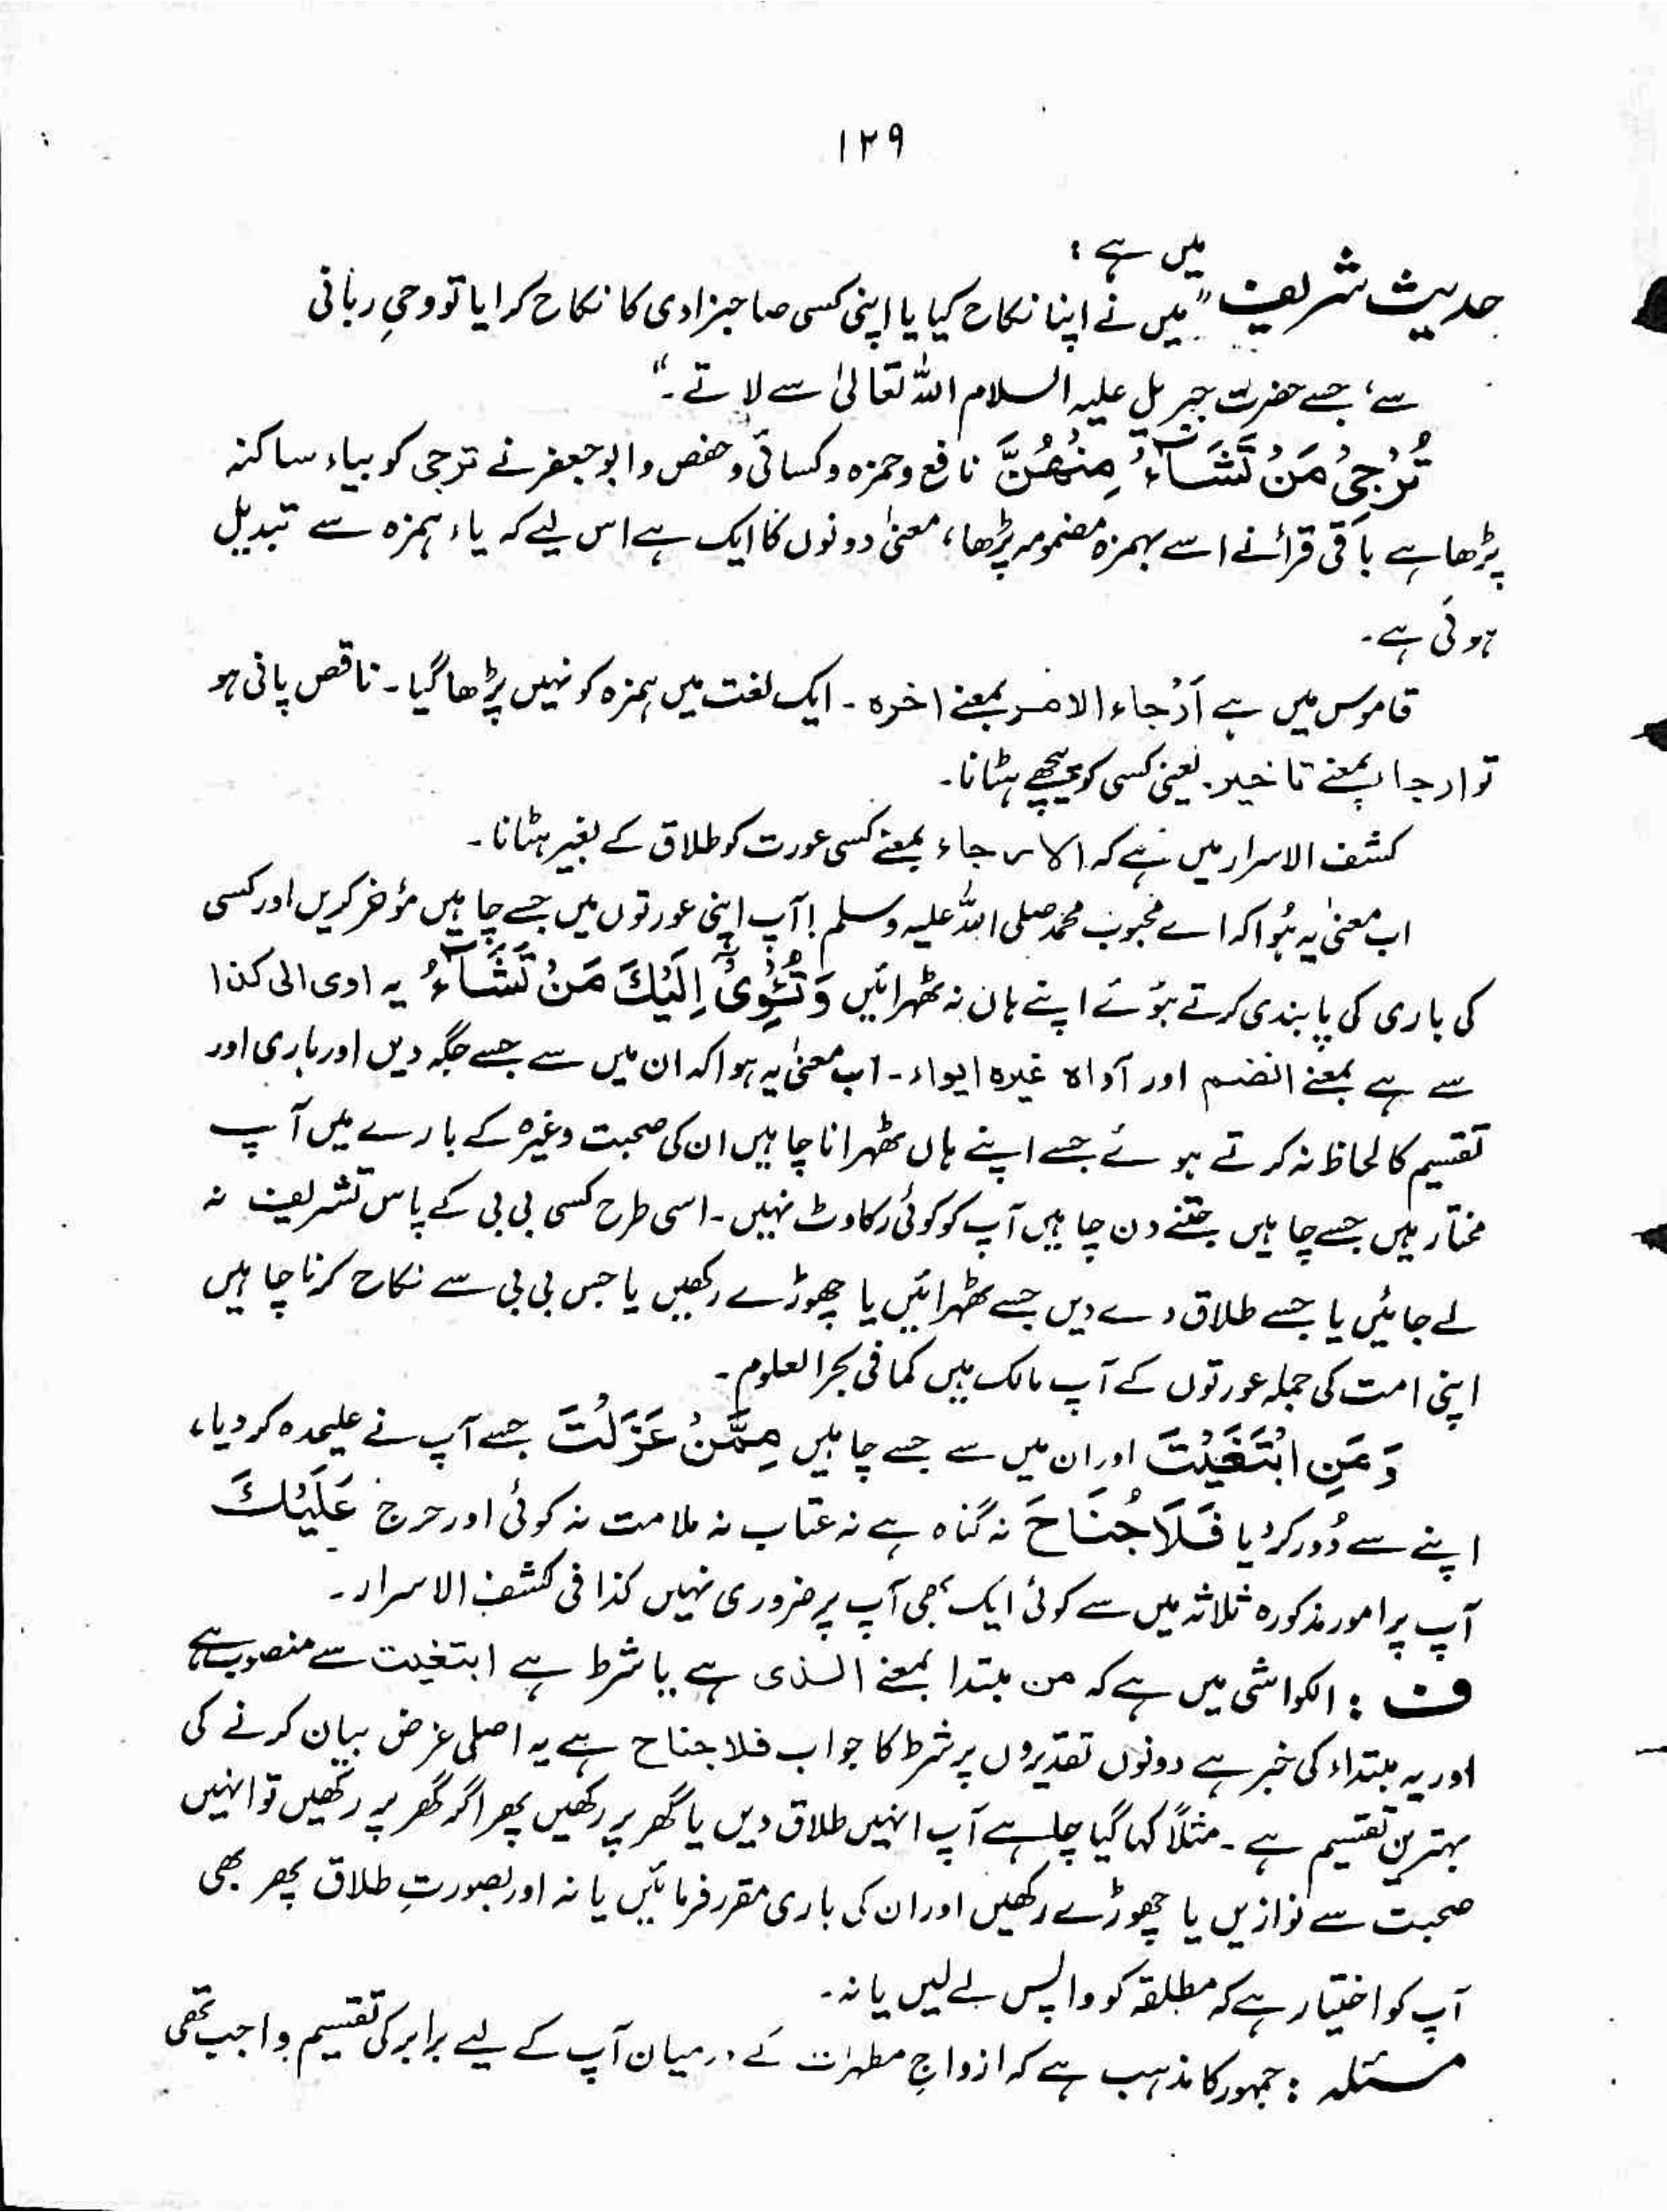 ۱۲۹
حدیث شریف میں ہے :
"میں نے اپنا نکاح کیا یا اپنی کسی صاحبزادی کا نکاح کرایا تو وحیِ ربانی
سے، جسے حضرت جبریل علیہ السلام اللہ تعالیٰ سے لاتے۔"
تُرْجِیْ مَنْ تَشَآءُ مِنْھُنَّ نافع و حمزہ و کسائی و حفص و ابو جعفر نے ترجی کو بیاء ساکنہ
پڑھا ہے باقی قرأ نے اسے بہمزہ مضمومہ پڑھا، معنیٰ دونوں کا ایک ہے اس لیے کہ یاء ہمزہ سے تبدیل
ہوئی ہے۔
قاموس میں ہے اَرْجاء الامر بمعنے اخرہ ۔ ایک لغت میں ہمزہ کو نہیں پڑھا گیا ۔ ناقص یائی ہو
تو ارجا بمعنے تاخیر۔ یعنی کسی کو پیچھے ہٹانا۔
کشف الاسرار میں ہے کہ الارجاء بمعنے کسی عورت کو طلاق کے بغیر ہٹانا ۔
اب معنیٰ یہ ہُوا کہ اے محبوب محمد صلی اللہ علیہ وسلم ! آپ اپنی عورتوں میں جسے چاہیں مؤخر کریں اور کسی
کی باری کی پابندی کرتے ہُوئے اپنے ہاں نہ ٹھہرائیں وَ تُـْٔوِیْ اِلَیْکَ مَنْ تَشَآءُ یہ اوی الی کذا
سے ہے بمعنے انضم اور آواہ غیرہ ایواء ۔ اب معنیٰ یہ ہوا کہ ان میں سے جسے جگہ دیں اور باری اور
تقسیم کا لحاظ نہ کرتے ہوئے جسے اپنے ہاں ٹھہرانا چاہیں ان کی صحبت وغیرہ کے بارے میں آپ
مختار ہیں جسے چاہیں جتنے دن چاہیں آپ کو کوئی رکاوٹ نہیں ۔ اسی طرح کسی بی بی کے پاس تشریف نہ
لے جائیں یا جسے طلاق دے دیں جسے ٹھہرائیں یا چھوڑے رکھیں یا جس بی بی سے نکاح کرنا چاہیں
اپنی امت کی جملہ عورتوں کے آپ مالک ہیں کما فی بحر العلوم ۔
وَ مَنِ ابْتَغَیْتَ اور ان میں سے جسے چاہیں مِمَّنْ عَزَلْتَ جسے آپ نے علیحدہ کر دیا،
اپنے سے دُور کر دیا فَلَا جُنَاحَ نہ گناہ ہے نہ عتاب نہ ملامت نہ کوئی اور حرج عَلَیْکَ
آپ پر امور مذکورہ ثلاثہ میں سے کوئی ایک بھی آپ پر ضروری نہیں کذا فی کشف الاسرار ۔
ف : الکواشی میں ہے کہ من مبتدا بمعنے الذی ہے یا شرط ہے ابتغیت سے منصوب ہے
اور یہ مبتداء کی خبر ہے دونوں تقدیروں پر شرط کا جواب فلا جناح ہے یہ اصلی غرض بیان کرنے کی
بہترین تقسیم ہے ۔ مثلاً کہا گیا چاہے آپ انہیں طلاق دیں یا گھر پر رکھیں پھر اگر گھر پر رکھیں تو انہیں
صحبت سے نوازیں یا چھوڑے رکھیں اور ان کی باری مقرر فرمائیں یا نہ اور بصورتِ طلاق پھر بھی
آپ کو اختیار ہے کہ مطلقہ کو واپس لے لیں یا نہ ۔
مسئلہ : جمہور کا مذہب ہے کہ ازواجِ مطہرات کے درمیان آپ کے لیے برابر کی تقسیم واجب تھی